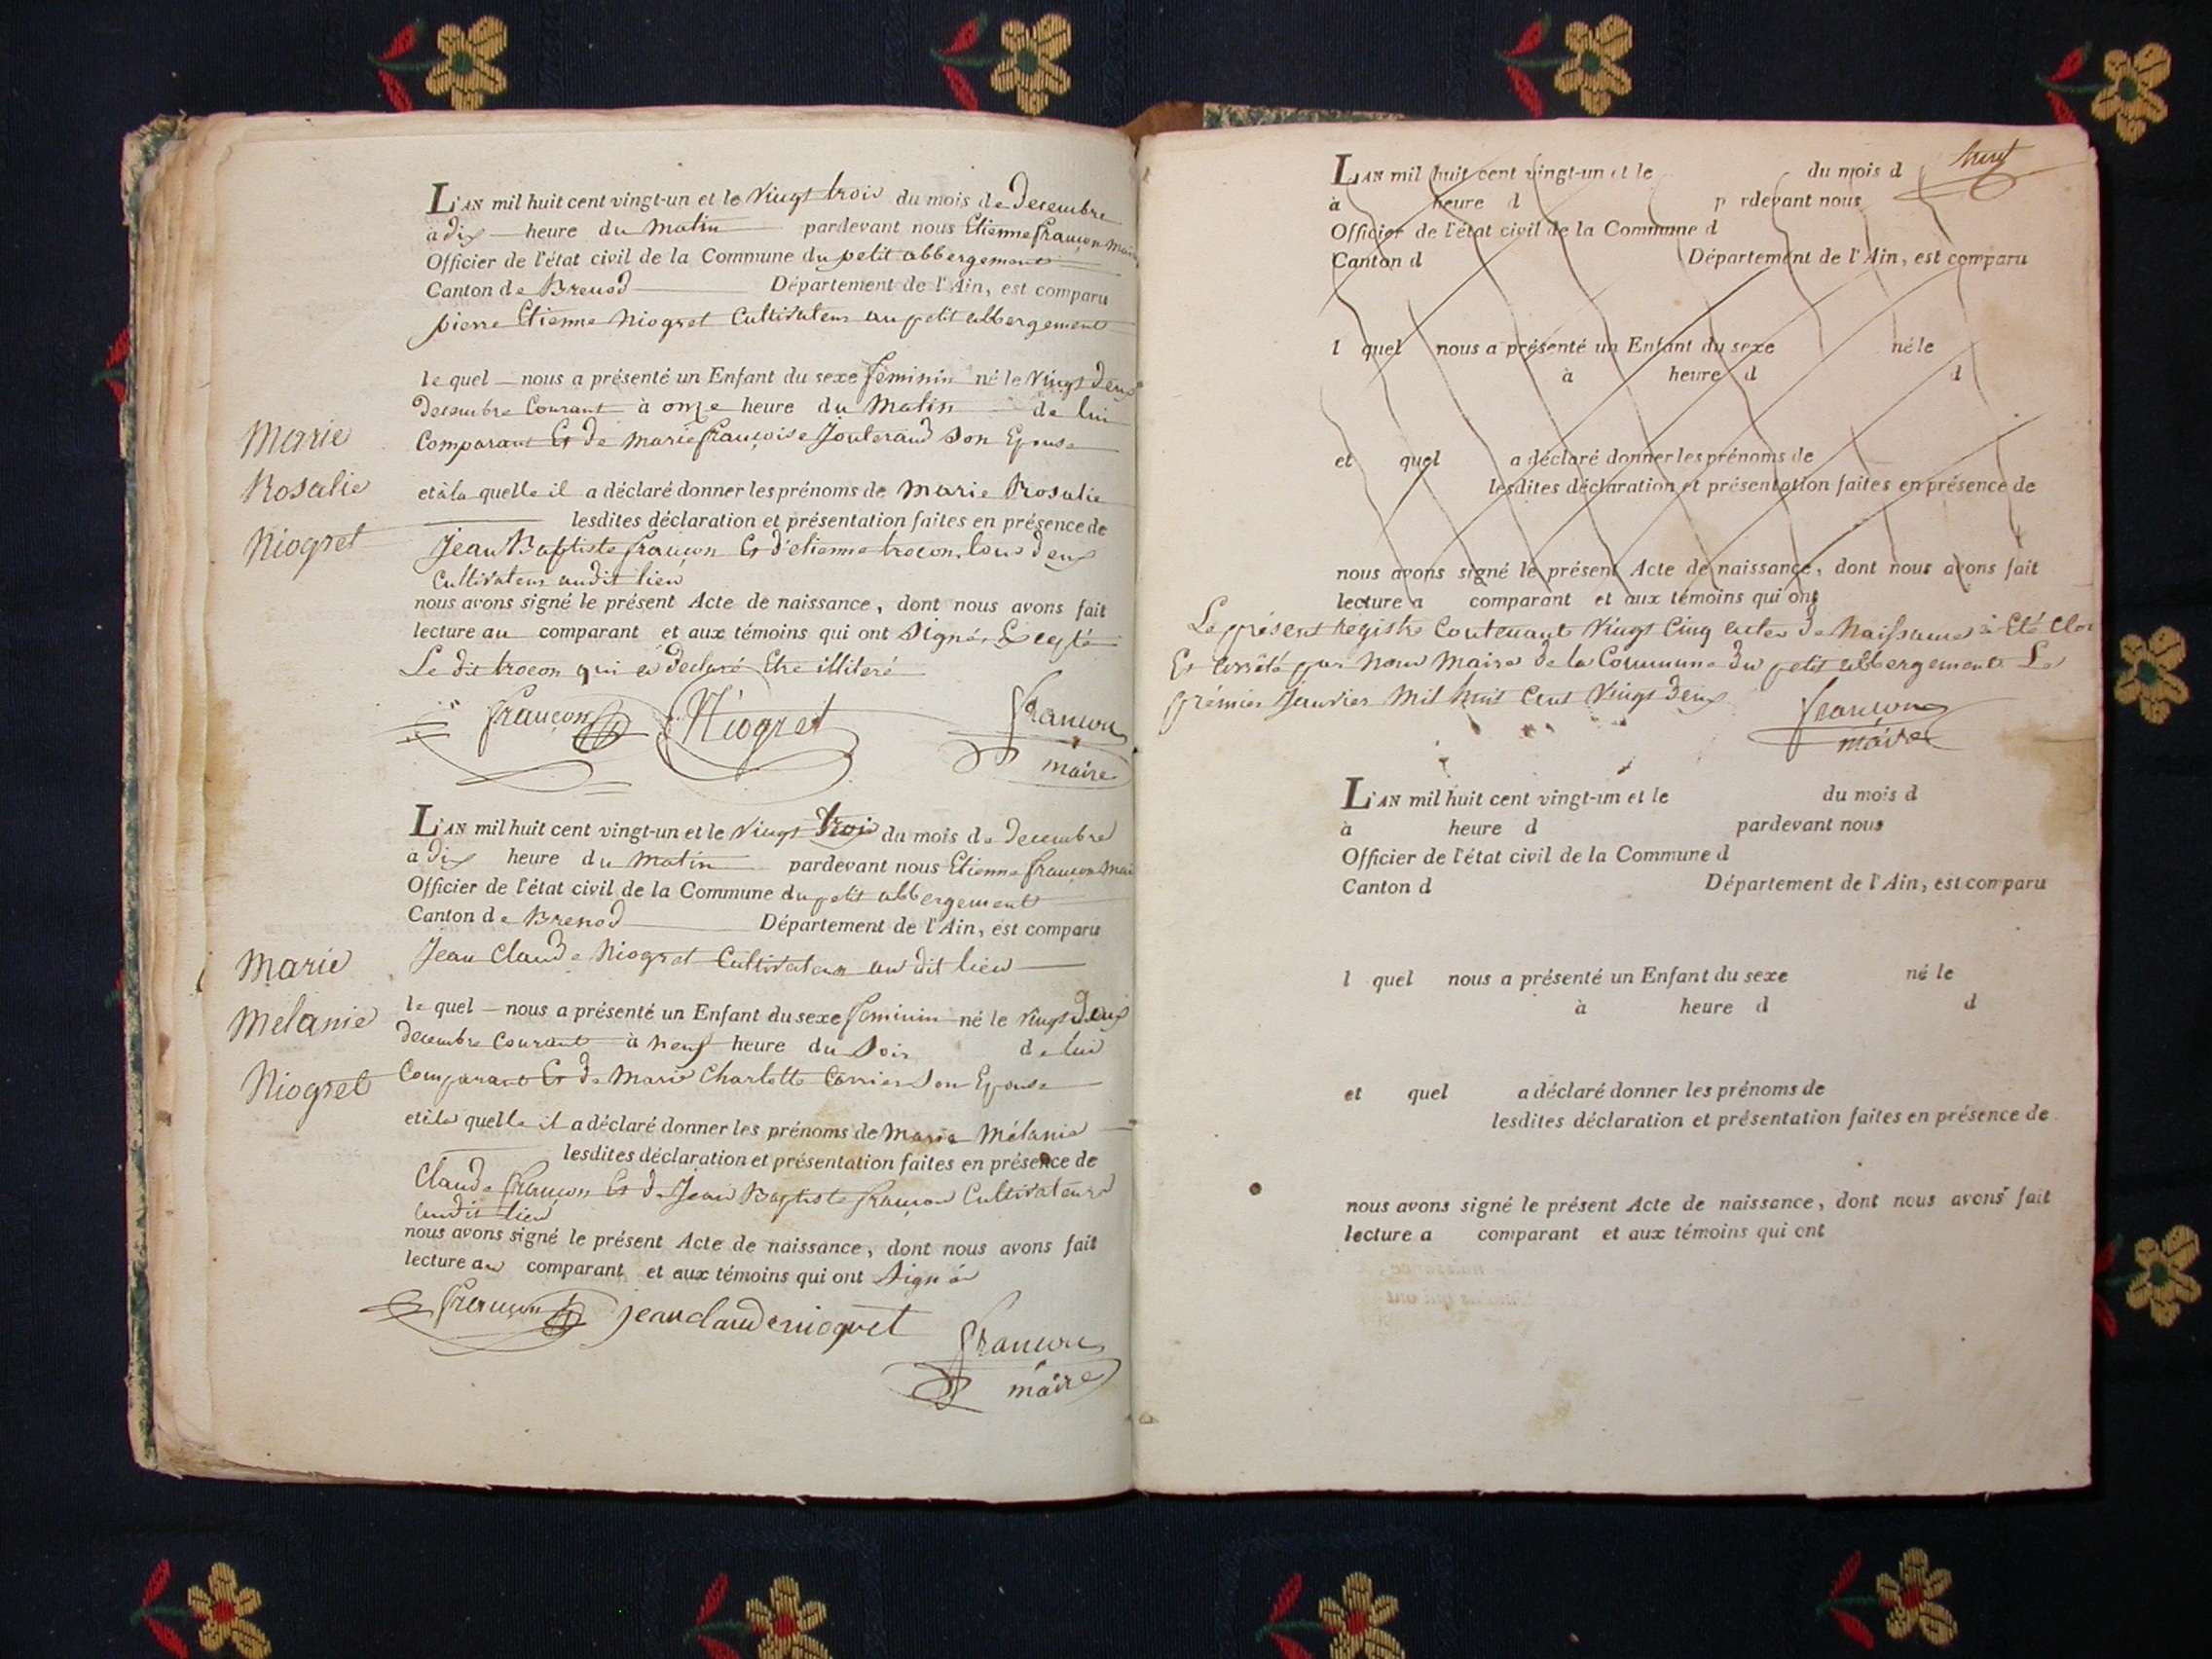 L'AN mil huit cent vingt-un et le vingt trois du mois de decembre
à dix heure du matin pardevant nous Etienne françon maire
Officier de l'état civil de la Commune du petit abbergement
Canton de Brenod Département de l'Ain, est comparu
pierre Etienne Niogret Cultivateur au petit abbergement
le quel nous a présenté un Enfant du sexe féminin né le vingt deux
decembre Courant à onze heure du Matin de lui
Comparant Et de marie françoise Jouterand Son Epouse
Marie
Rosalie
Niogret
et à la quelle il a déclaré donner les prénoms de Marie Rosalie
lesdites déclaration et présentation faites en présence de
Jean Baptiste françon Et d'etienne trocon, tous deux
Cultivateur audit lieu
nous avons signé le présent Acte de naissance, dont nous avons fait
lecture au comparant et aux témoins qui ont Signés Excepté
Le dit trocon qui a declaré Etre illiteré
françon Niogret françon
maire
L'AN mil huit cent vingt-un et le vingt trois du mois de decembre
à dix heure du matin pardevant nous Etienne françon maire
Officier de l'état civil de la Commune du petit abbergement
Canton de Brenod Département de l'Ain, est comparu
Jean Claude Niogret Cultivateur au dit lieu
le quel nous a présenté un Enfant du sexe feminin né le vingt deux
decembre Courant à neuf heure du Soir de lui
Comparant Et de Marie Charlotte Carrier Son Epouse
Marie
Melanie
Niogret
et à la quelle il a déclaré donner les prénoms de Marie Mélanie
lesdites déclaration et présentation faites en présence de
Claude françon Et de Jean Baptiste françon Cultivateurs
audit lieu
nous avons signé le présent Acte de naissance, dont nous avons fait
lecture au comparant et aux témoins qui ont Signé
françon jean claude niogret françon
maire
huit
L'AN mil huit cent vingt-un et le du mois d
à heure d p rdevant nous
Officier de l'état civil de la Commune d
Canton d Département de l'Ain, est comparu
l quel nous a présenté un Enfant du sexe né le
à heure d d
et quel a déclaré donner les prénoms de
lesdites déclaration et présentation faites en présence de
nous avons signé le présent Acte de naissance, dont nous avons fait
lecture a comparant et aux témoins qui ont
Le présent Registre Contenant vingt Cinq actes de Naissance à Eté Clos
Et arrêté par Nous Maire de la Commune du petit abbergement Le
prémier Janvier Mil huit Cent vingt deux
françon
maire
L'AN mil huit cent vingt-un et le du mois d
à heure d pardevant nous
Officier de l'état civil de la Commune d
Canton d Département de l'Ain, est comparu
l quel nous a présenté un Enfant du sexe né le
à heure d d
et quel a déclaré donner les prénoms de
lesdites déclaration et présentation faites en présence de
nous avons signé le présent Acte de naissance, dont nous avons fait
lecture a comparant et aux témoins qui ont